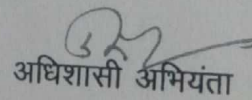 अधिशासी अभियंता